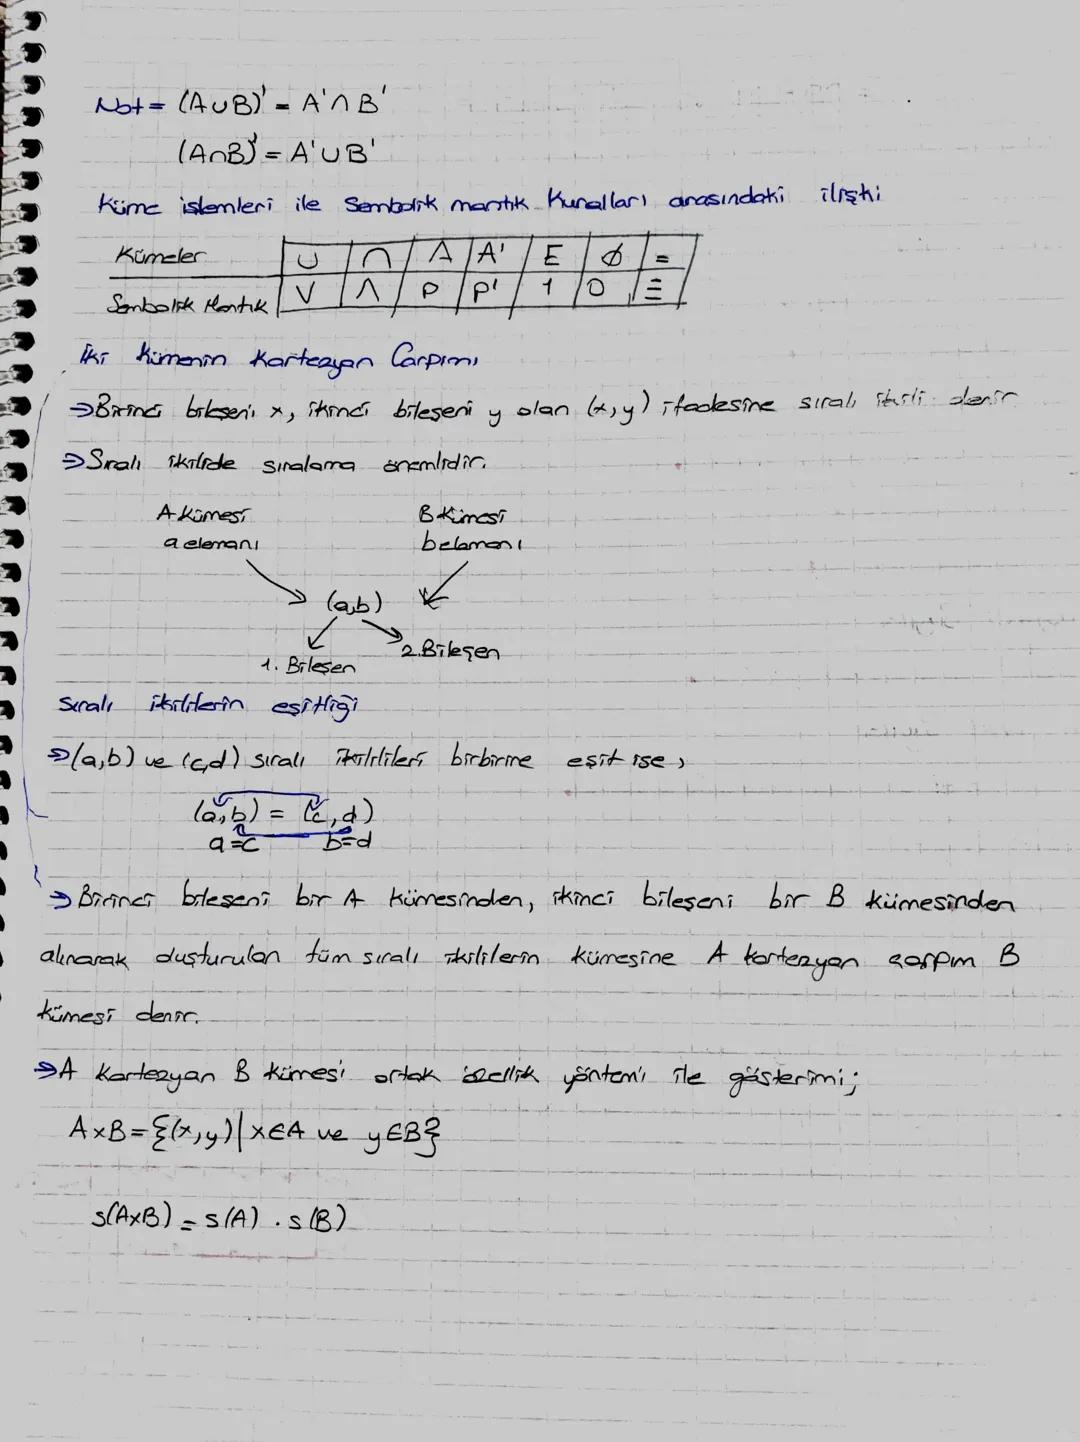 Not = (A∪B)' = A'∩B'
(A∩B)' = A'∪B'
Küme işlemleri ile Sembolik mantık Kuralları arasındaki ilişki
Kümeler ∪ ∩ A A' E ∅ =
Sembolik Mantık ∨ ∧ P P' 1 0 ≡
İki Kümenin Kartezyen Çarpımı
⇒Birinci bileşeni x, ikinci bileşeni y olan (x,y) ifadesine sıralı ikili denir
⇒Sıralı ikilide sıralama önemlidir.
A Kümesi B Kümesi
a elemanı b elemanı
(a,b)
1. Bileşen 2.Bileşen
Sıralı ikililerin eşitliği
⇒(a,b) ve (c,d) sıralı ikilileri birbirine eşit ise,
(a,b) = (c,d)
a=c b=d
⇒Birinci bileşeni bir A kümesinden, ikinci bileşeni bir B kümesinden
alınarak oluşturulan tüm sıralı ikililerin kümesine A kartezyen çarpım B
kümesi denir.
⇒A kartezyen B kümesi ortak özellik yöntemi ile gösterimi;
A×B={(x,y)|x∈A ve y∈B}
s(A×B) = s(A) . s(B)